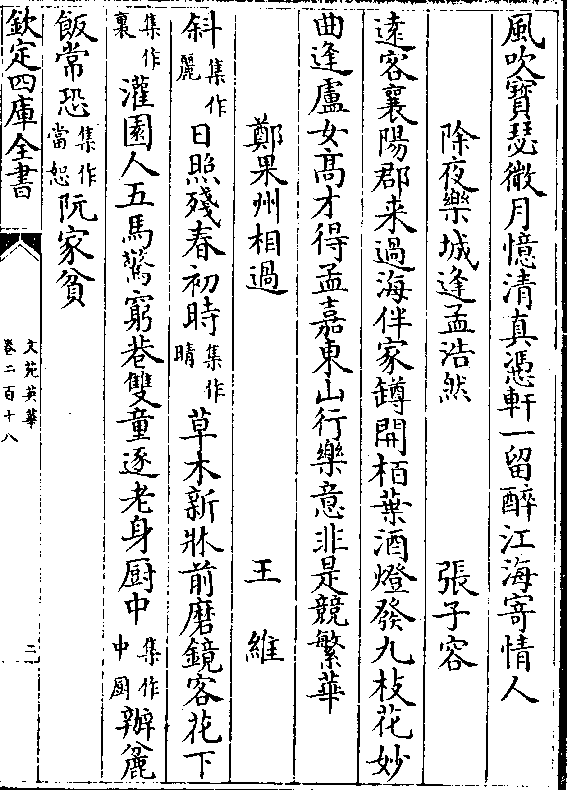 風吹寶瑟微月憶清真憑軒一留醉江海寄情人
除夜樂城逢孟浩然 張子容
逺客襄陽郡来過海伴家鐏開栢葉酒燈發九枝花妙
曲逢盧女髙才得孟嘉東山行樂意非是競繁華
鄭果州相過 王維
斜集作麗日照殘春初時集作晴草木新牀前磨鏡客花下
集作裏灌園人五馬驚窮巷雙童逐老身厨中集作中厨辦麄
飯常恐集作當恕阮家貧
欽定四庫全書
文苑英華
卷二百十八
二